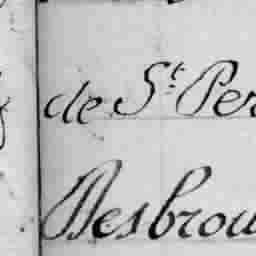 de St. Per
Desbrou